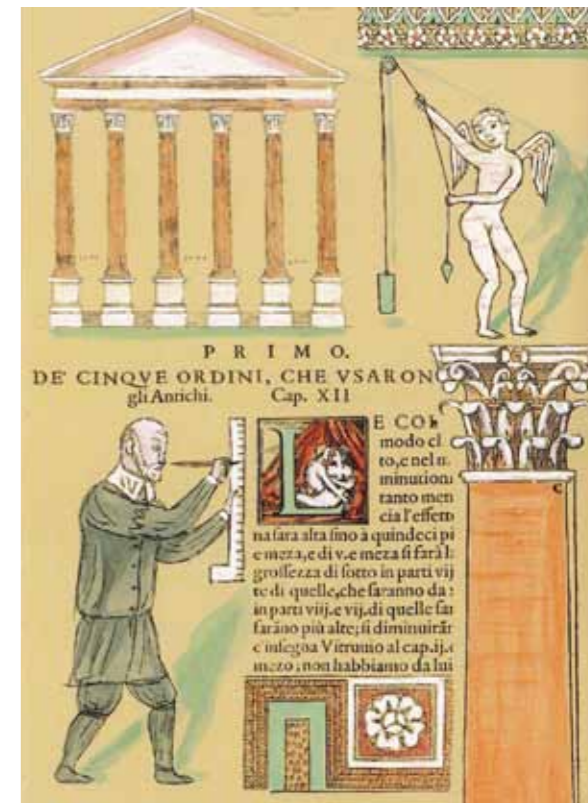 P R I M O.
DE' CINQVE ORDINI, CHE VSARON
gli Antichi. Cap. XII
L E COL
modo cl
to, e nel
minution
tanto men
cia l'effett
na sara alta fino à quindeci pi
e meza, e di v. e meza si farà
grossezza di sotto in parti vij
te di quelle, che saranno da
in parti viij. e vij. di quelle sar
sarãno più alte; si diminuirãr
c'insegna Vitruuio al cap. ij.
mezo; non habbiamo da lui